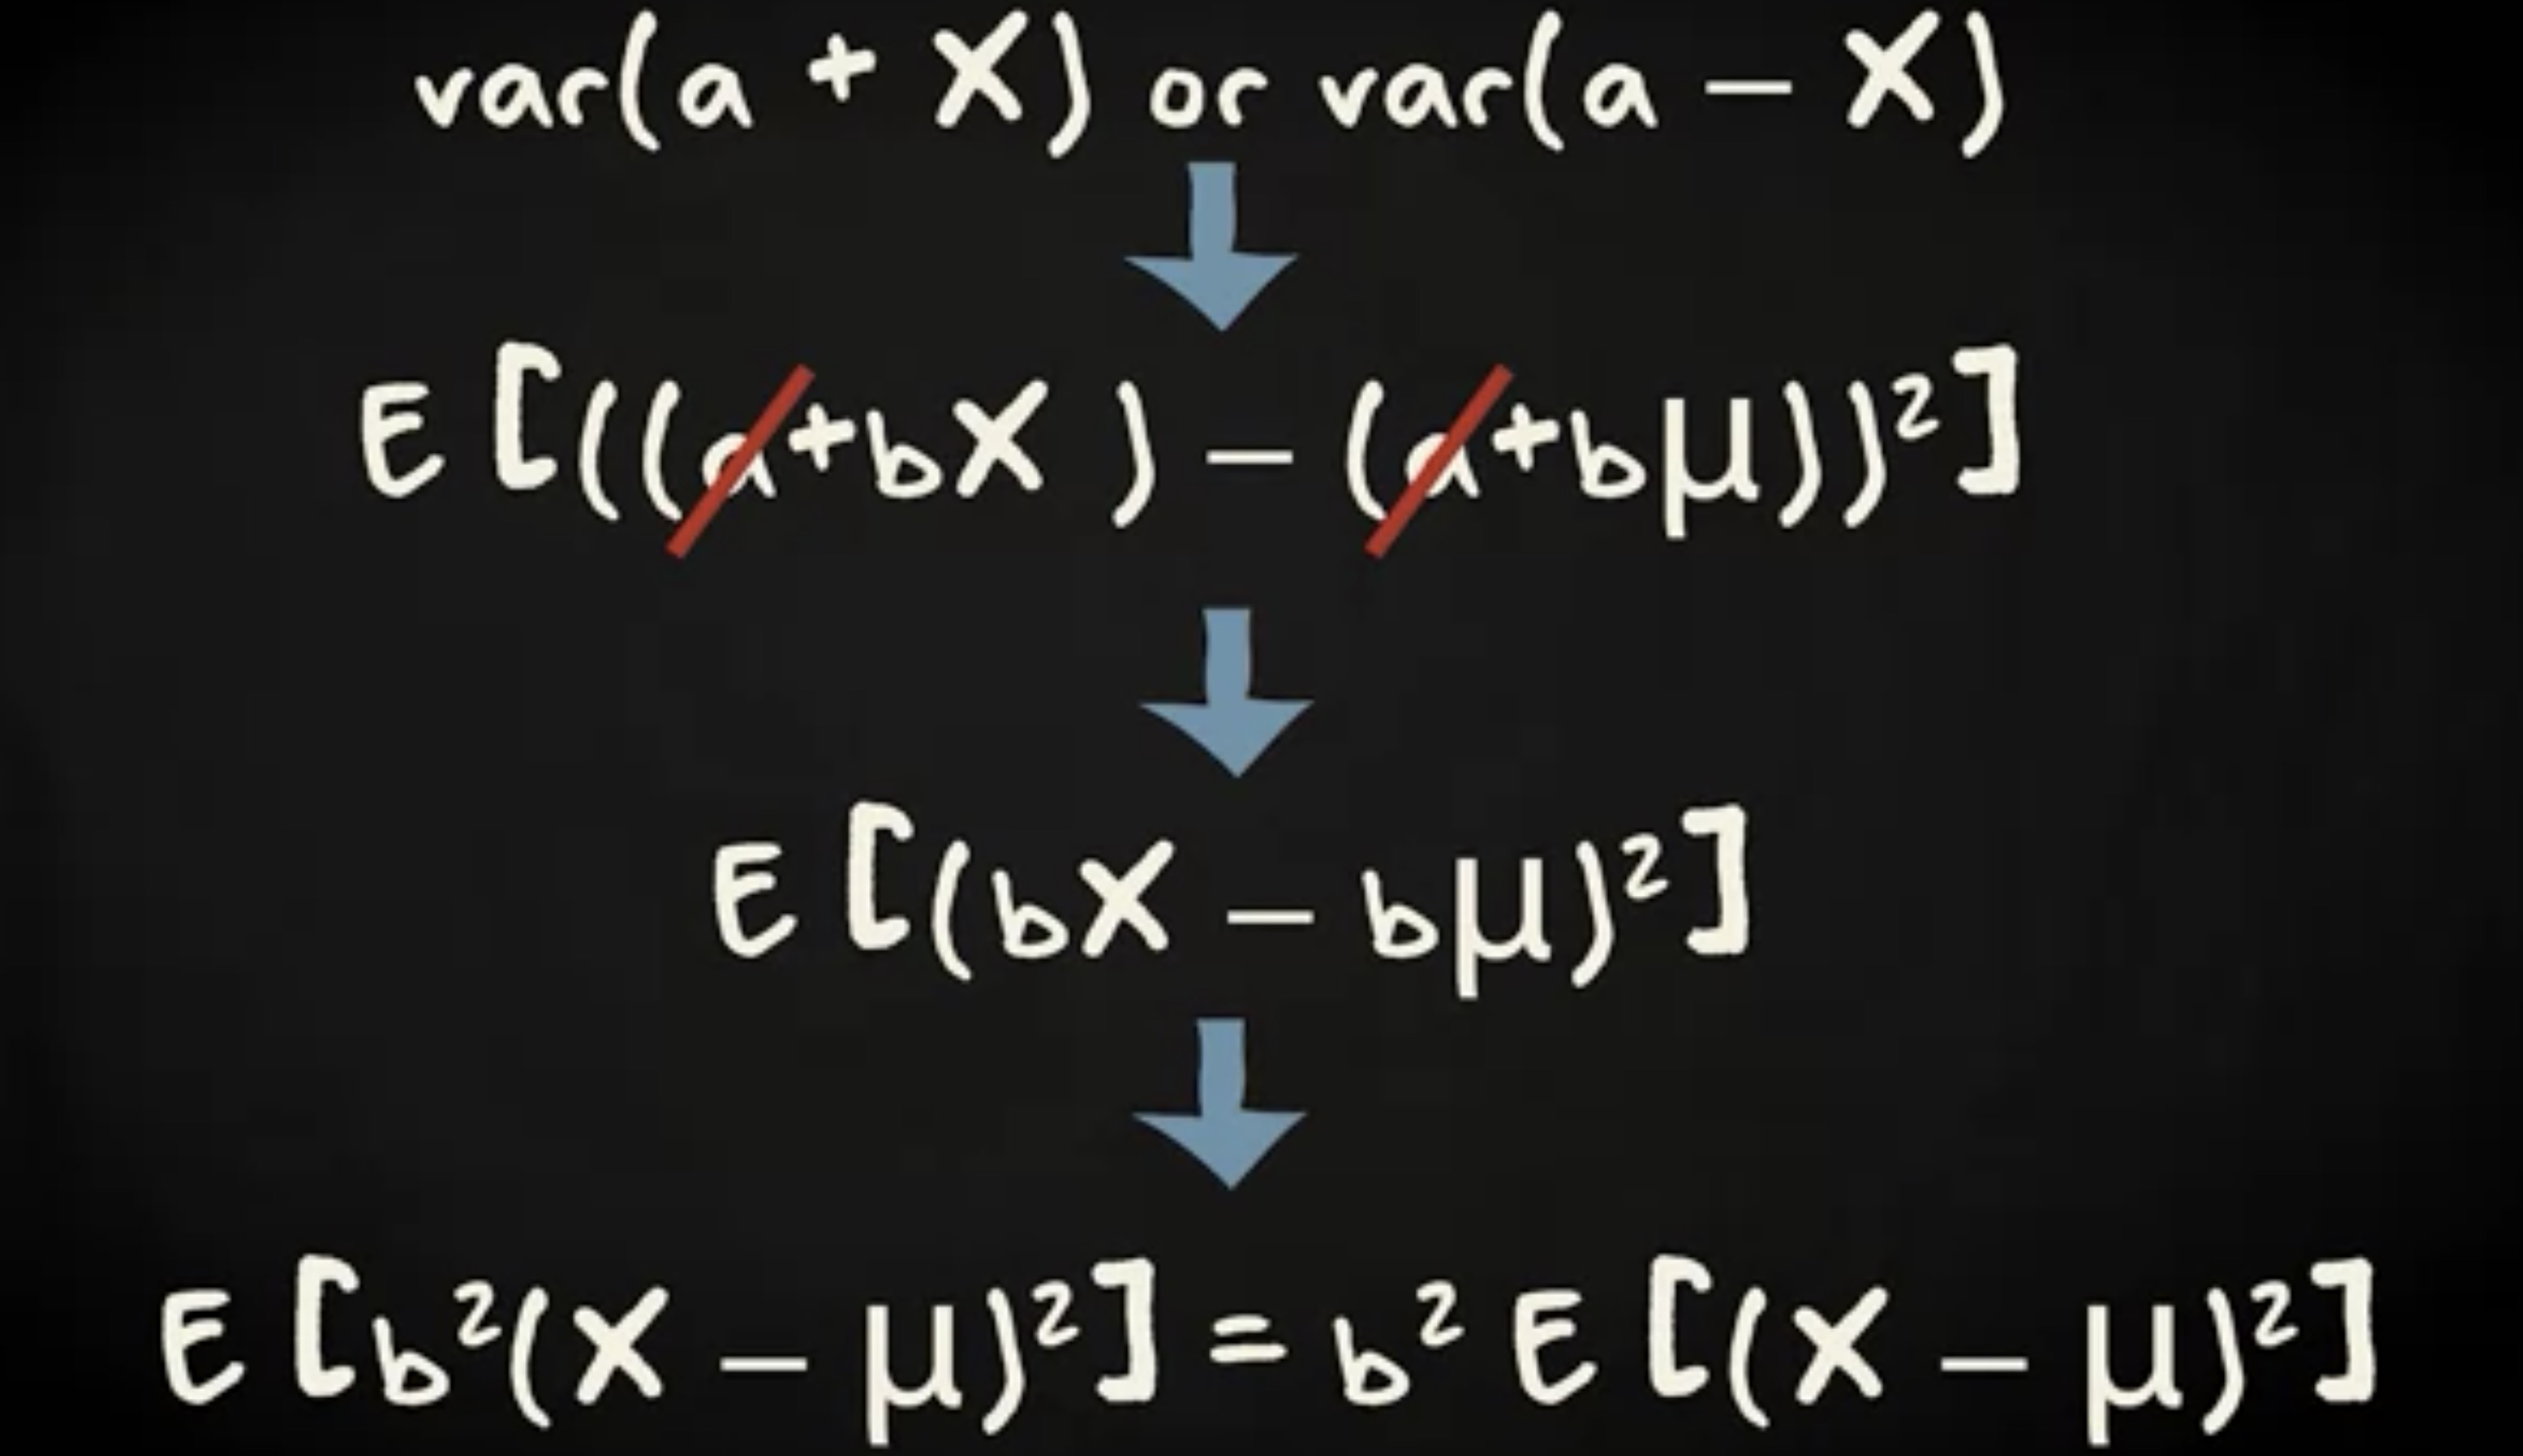 var(a + X) or var(a – X)
E[((a+bX ) – (a+bμ))²]
E[(bX – bμ)²]
E[b²(X – μ)²] = b² E[(X – μ)²]